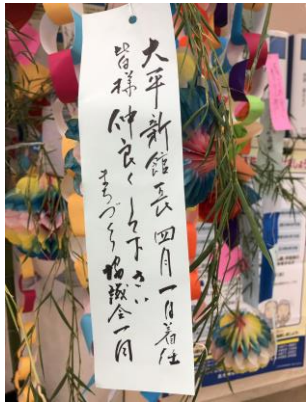 大平新館長 四月一日着任
皆様 仲良くして下さい
まちづくり協議会一同